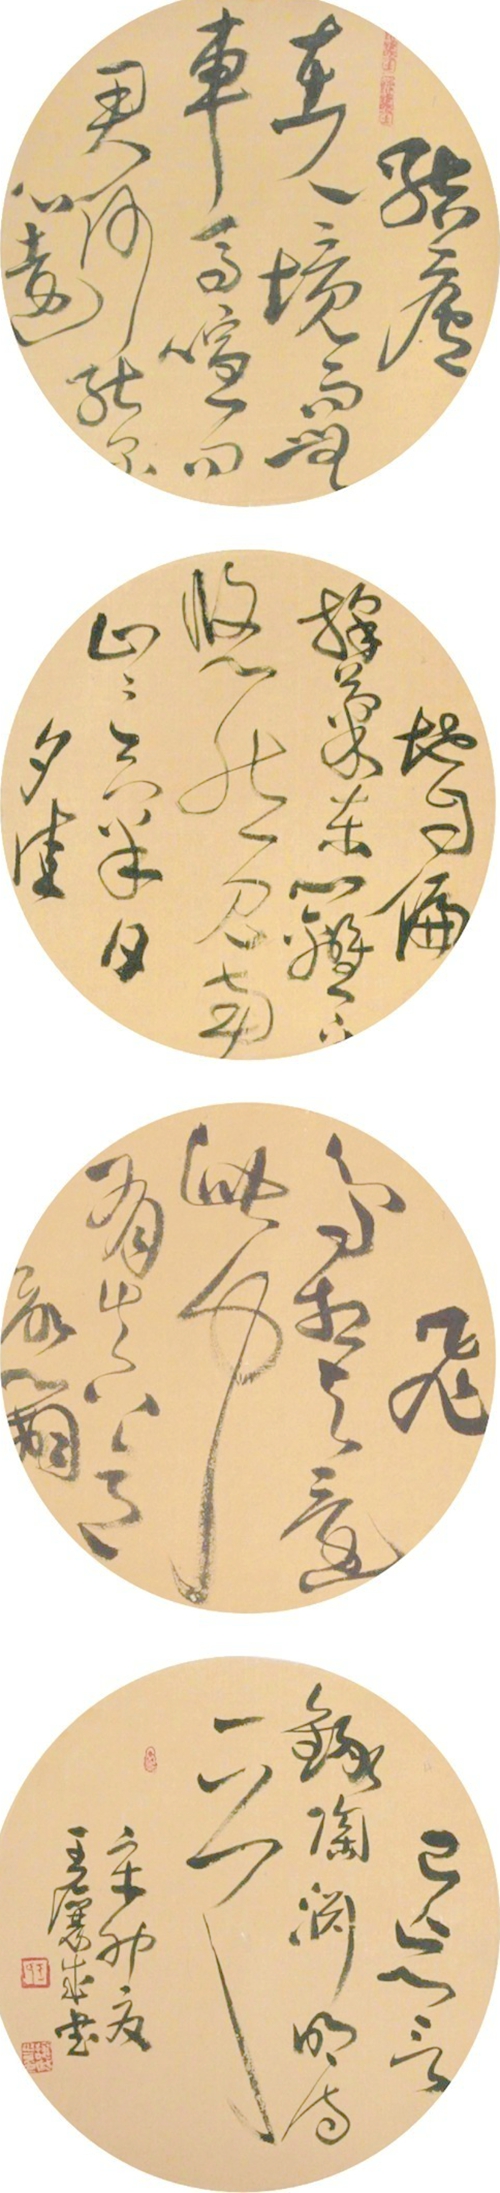 結廬
在人境而無
車馬喧問
君何能爾
心遠
地自偏
採菊東籬下
悠然見南
山氣日
夕佳
飛
鳥相與還
此中
有真意
欲辨
已忘言
錄陶淵明詩
一首
辛卯夏
王成書